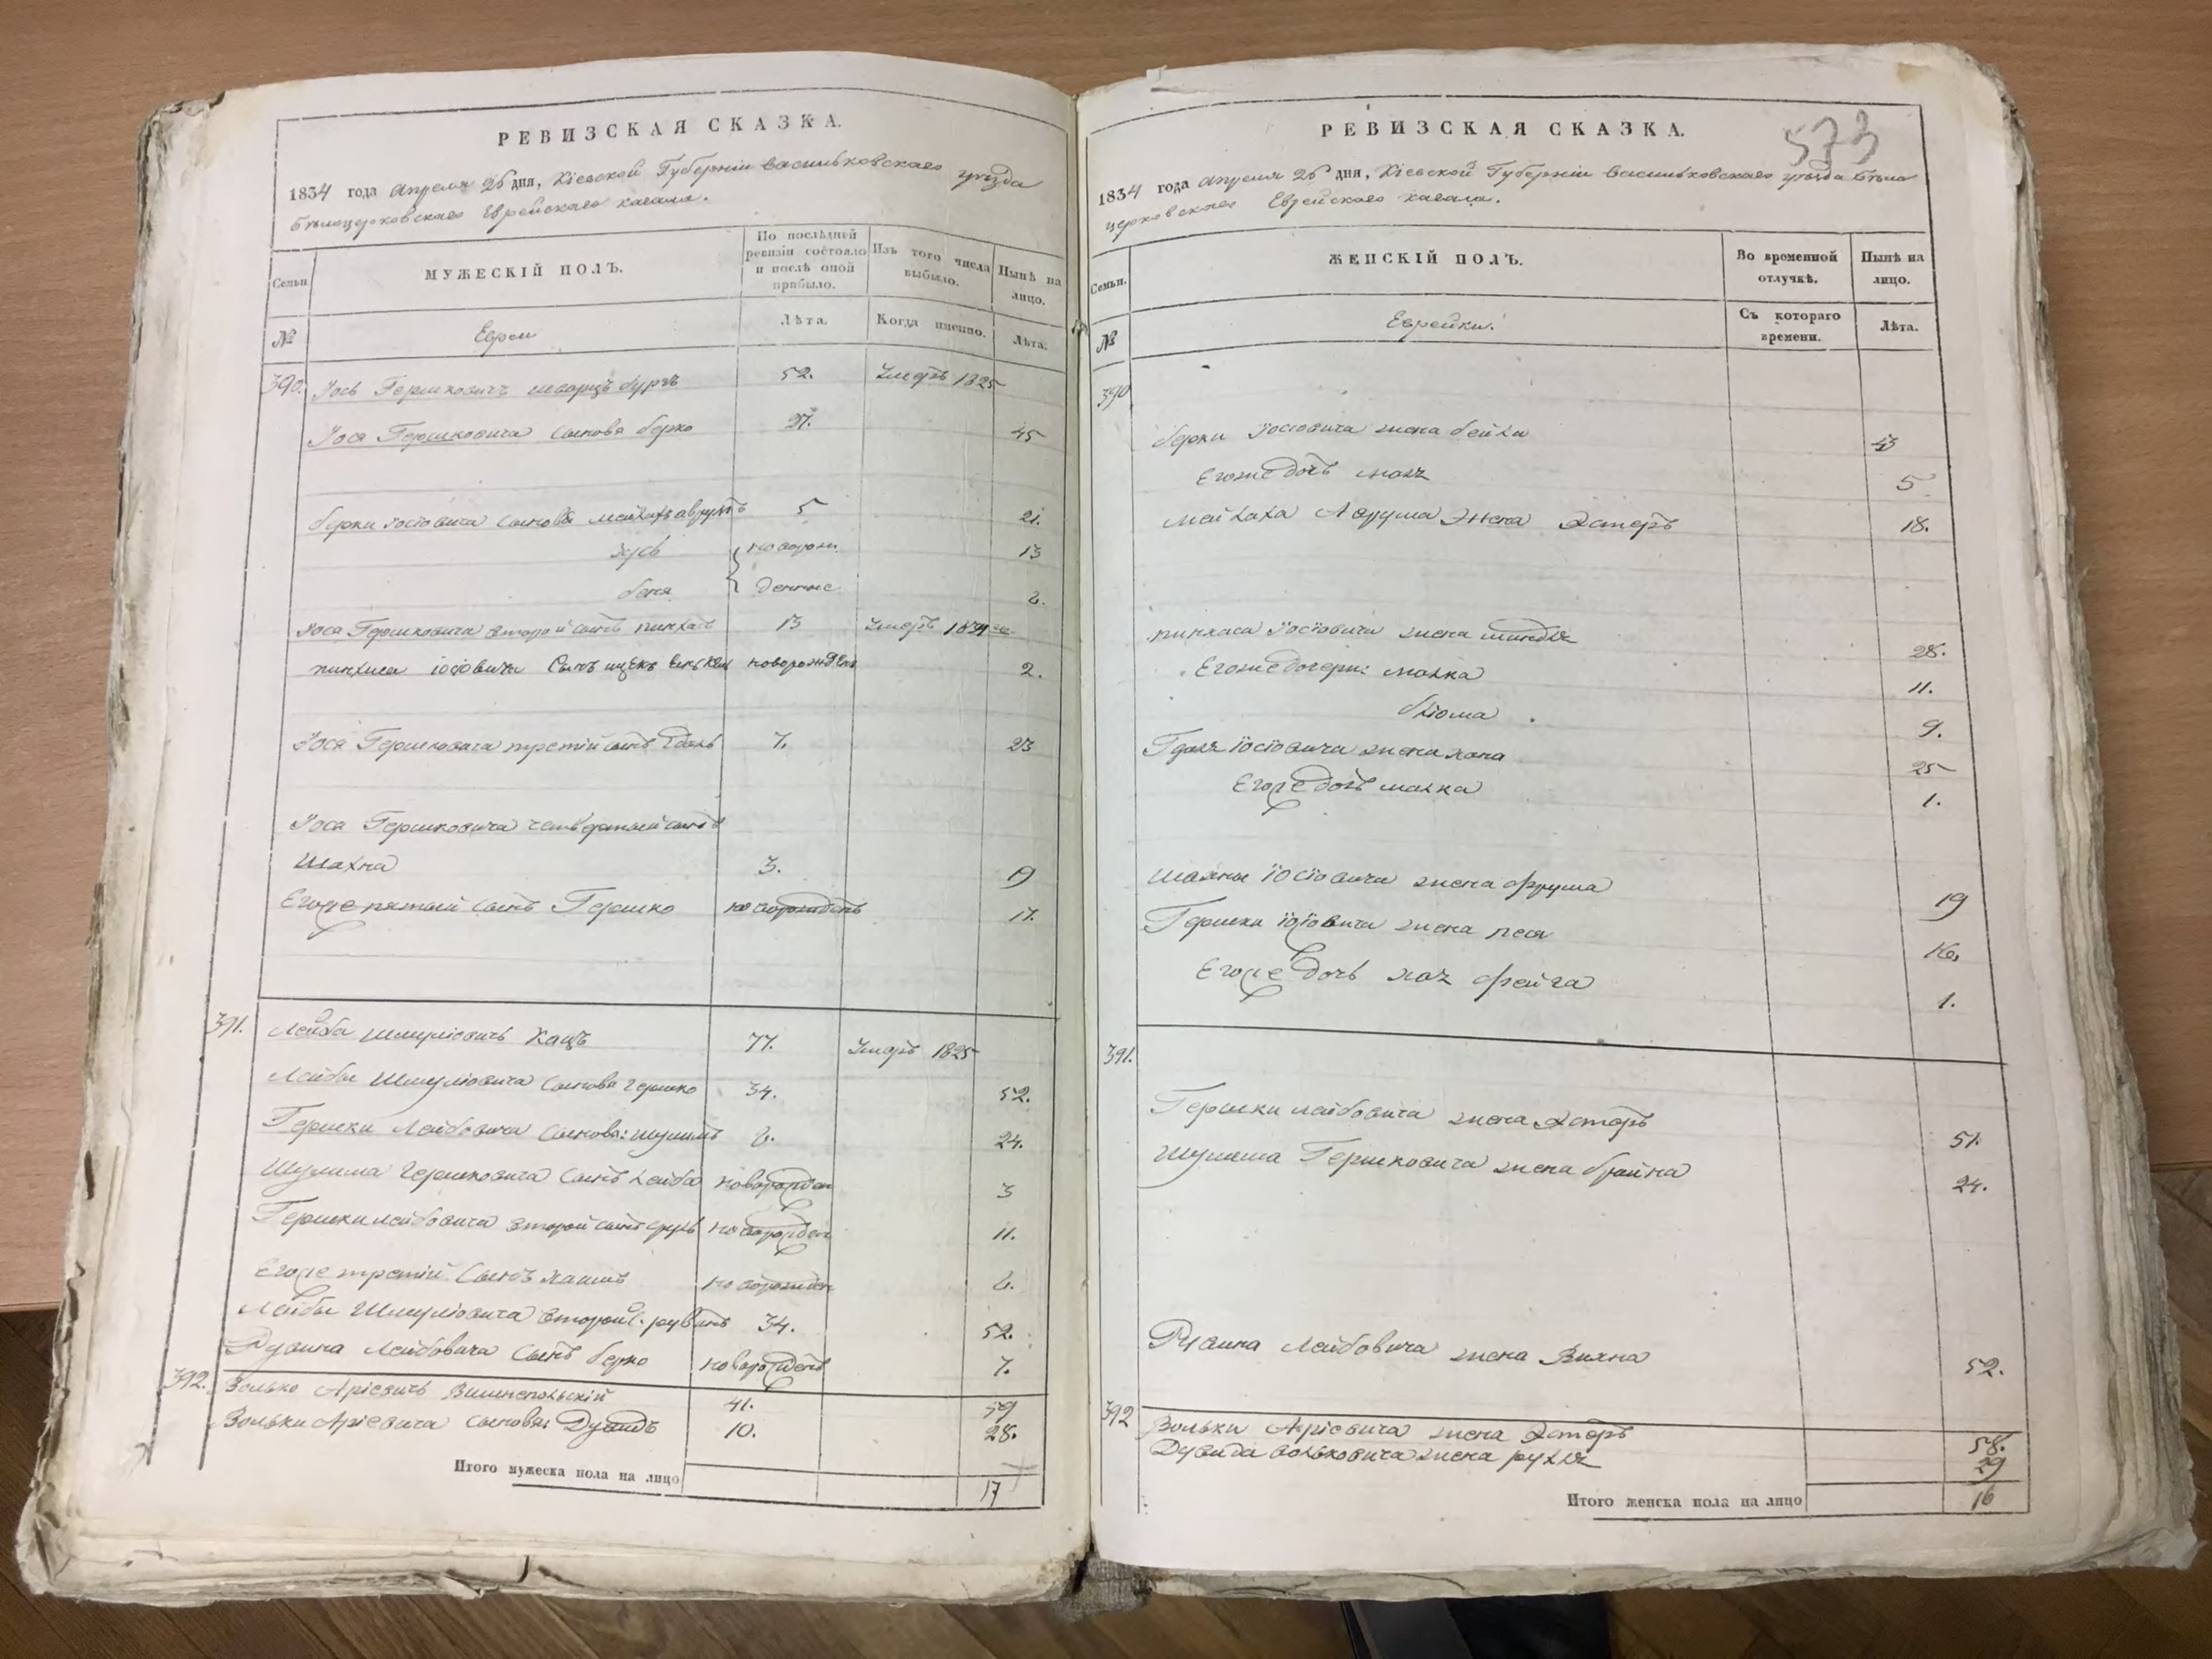 РЕВИЗСКАЯ СКАЗКА.
1834 года Апреля 25 дня, Кіевской Губерніи Васильковскаго уезда
Белоцерковскаго Еврейскаго кагала.
Семьи. МУЖЕСКІЙ ПОЛЪ. По послѣдней ревизіи состояло и послѣ оной прибыло. Изъ того числа выбыло. Нынѣ на лицо.
№ Евреи Лѣта. Когда именно. Лѣта.
390. Іось Гершковичъ шварцъ бургъ 52. Умеръ 1825
Іося Гершковича сыновья берко 27. 45
берки Іосіовича сыновья Аврумъ 5 21.
Зусь новорож 13
беня денные 2.
Іося Гершковича второй сынъ пинхасъ 13 Умеръ 1831
пинхаса іосіовича сынъ новорожден 2.
Іося Гершковича третій сынъ Гдаль 7. 23
Іося Гершковича четвертый сынъ
Шахна 3. 19
Егоже пятый сынъ Гершко новорожденъ 17.
391. Лейба Шмуліовичъ Кацъ 77. Умеръ 1825
Лейбы Шмуліовича сыновья гершко 34. 52.
Гершки Лейбовича сыновья: шулимъ 6. 24.
Шулима Гершковича сынъ лейба новорожден 3
Гершки лейбовича второй сынъ сруль новорожден 11.
Егоже третій сынъ хаимъ новорожден 6.
Лейбы Шмуліовича второй с. рувинъ 34. 52.
Рувина Лейбовича сынъ берко новорожденъ 7.
392. Волько Аріевичъ Вишнепольскій 41. 59
Вольки Аріевича сыновья Дувидъ 10. 28.
Итого мужеска пола на лицо 17
573
РЕВИЗСКАЯ СКАЗКА.
1834 года Апреля 25 дня, Кіевской Губерніи Васильковскаго уезда Бело
церковскаго Еврейскаго кагала.
Семьи. ЖЕНСКІЙ ПОЛЪ. Во временной отлучкѣ. Нынѣ на лицо.
№ Еврейки. Съ котораго времени. Лѣта.
390
берки Іосіовича жена бейла 43
Егоже дочь 5
Аврума жена Эстеръ 18.
пинхаса Іосіовича жена шиндля 28.
Егоже дочери: малка 11.
блюма 9.
Гдаля Іосіовича жена хана 25
Егоже дочь малка 1.
шахны Іосіовича жена фрума 19
Гершки Іосіовича жена песя 16.
Егоже дочь фейга 1.
391.
Гершки лейбовича жена Эстеръ 51.
Шулима Гершковича жена брайна 24.
Рувина Лейбовича жена Вихна 52.
392 Вольки Аріевича жена Эстеръ 58.
Дувида вольковича жена рухля 29
Итого женска пола на лицо 16